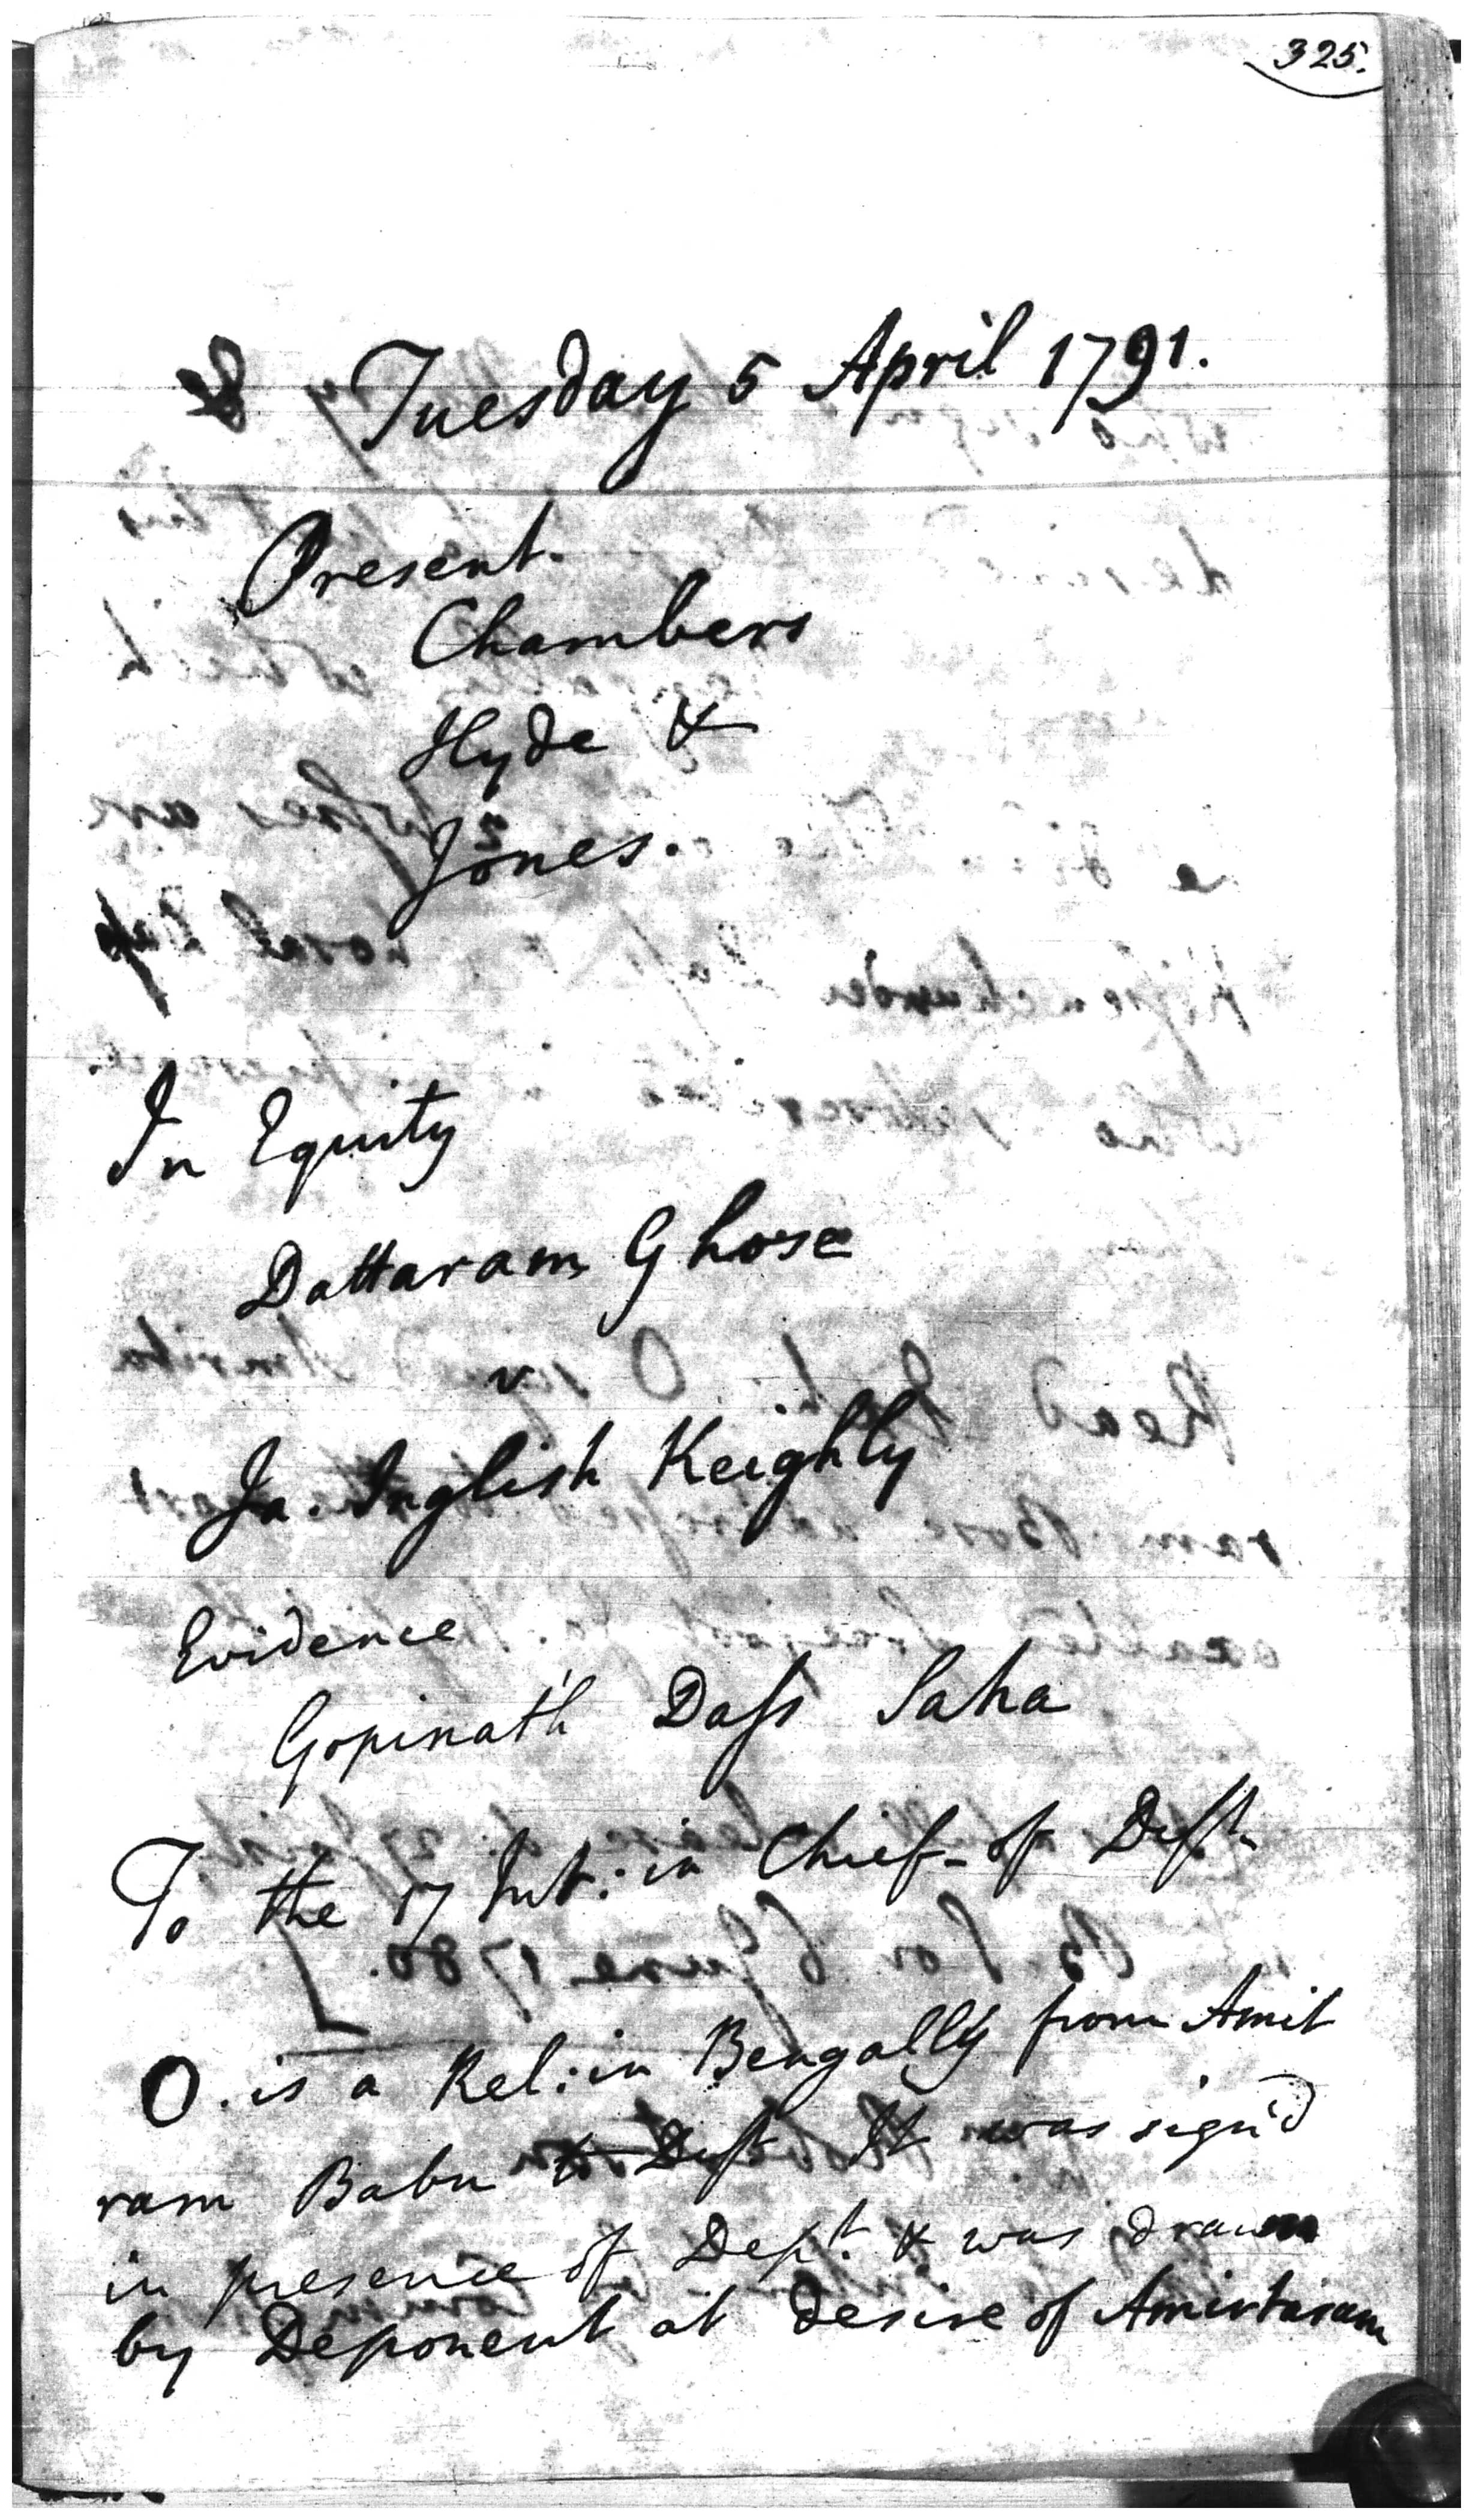 325.
Tuesday 5 April 1791.
Present.
Chambers
Hyde &
Jones.
In Equity
Dattaram Ghose
v
Ja. Inglish Keighly
Evidence
Gopinath Dass Saha
To the 17 Int: in Chief of Deft
O. is a Rel: in Bengally from Amit
ram Babu to Deft It was sign'd
in presence of Dept. & was drawn
by Deponent at desire of Amirtaram